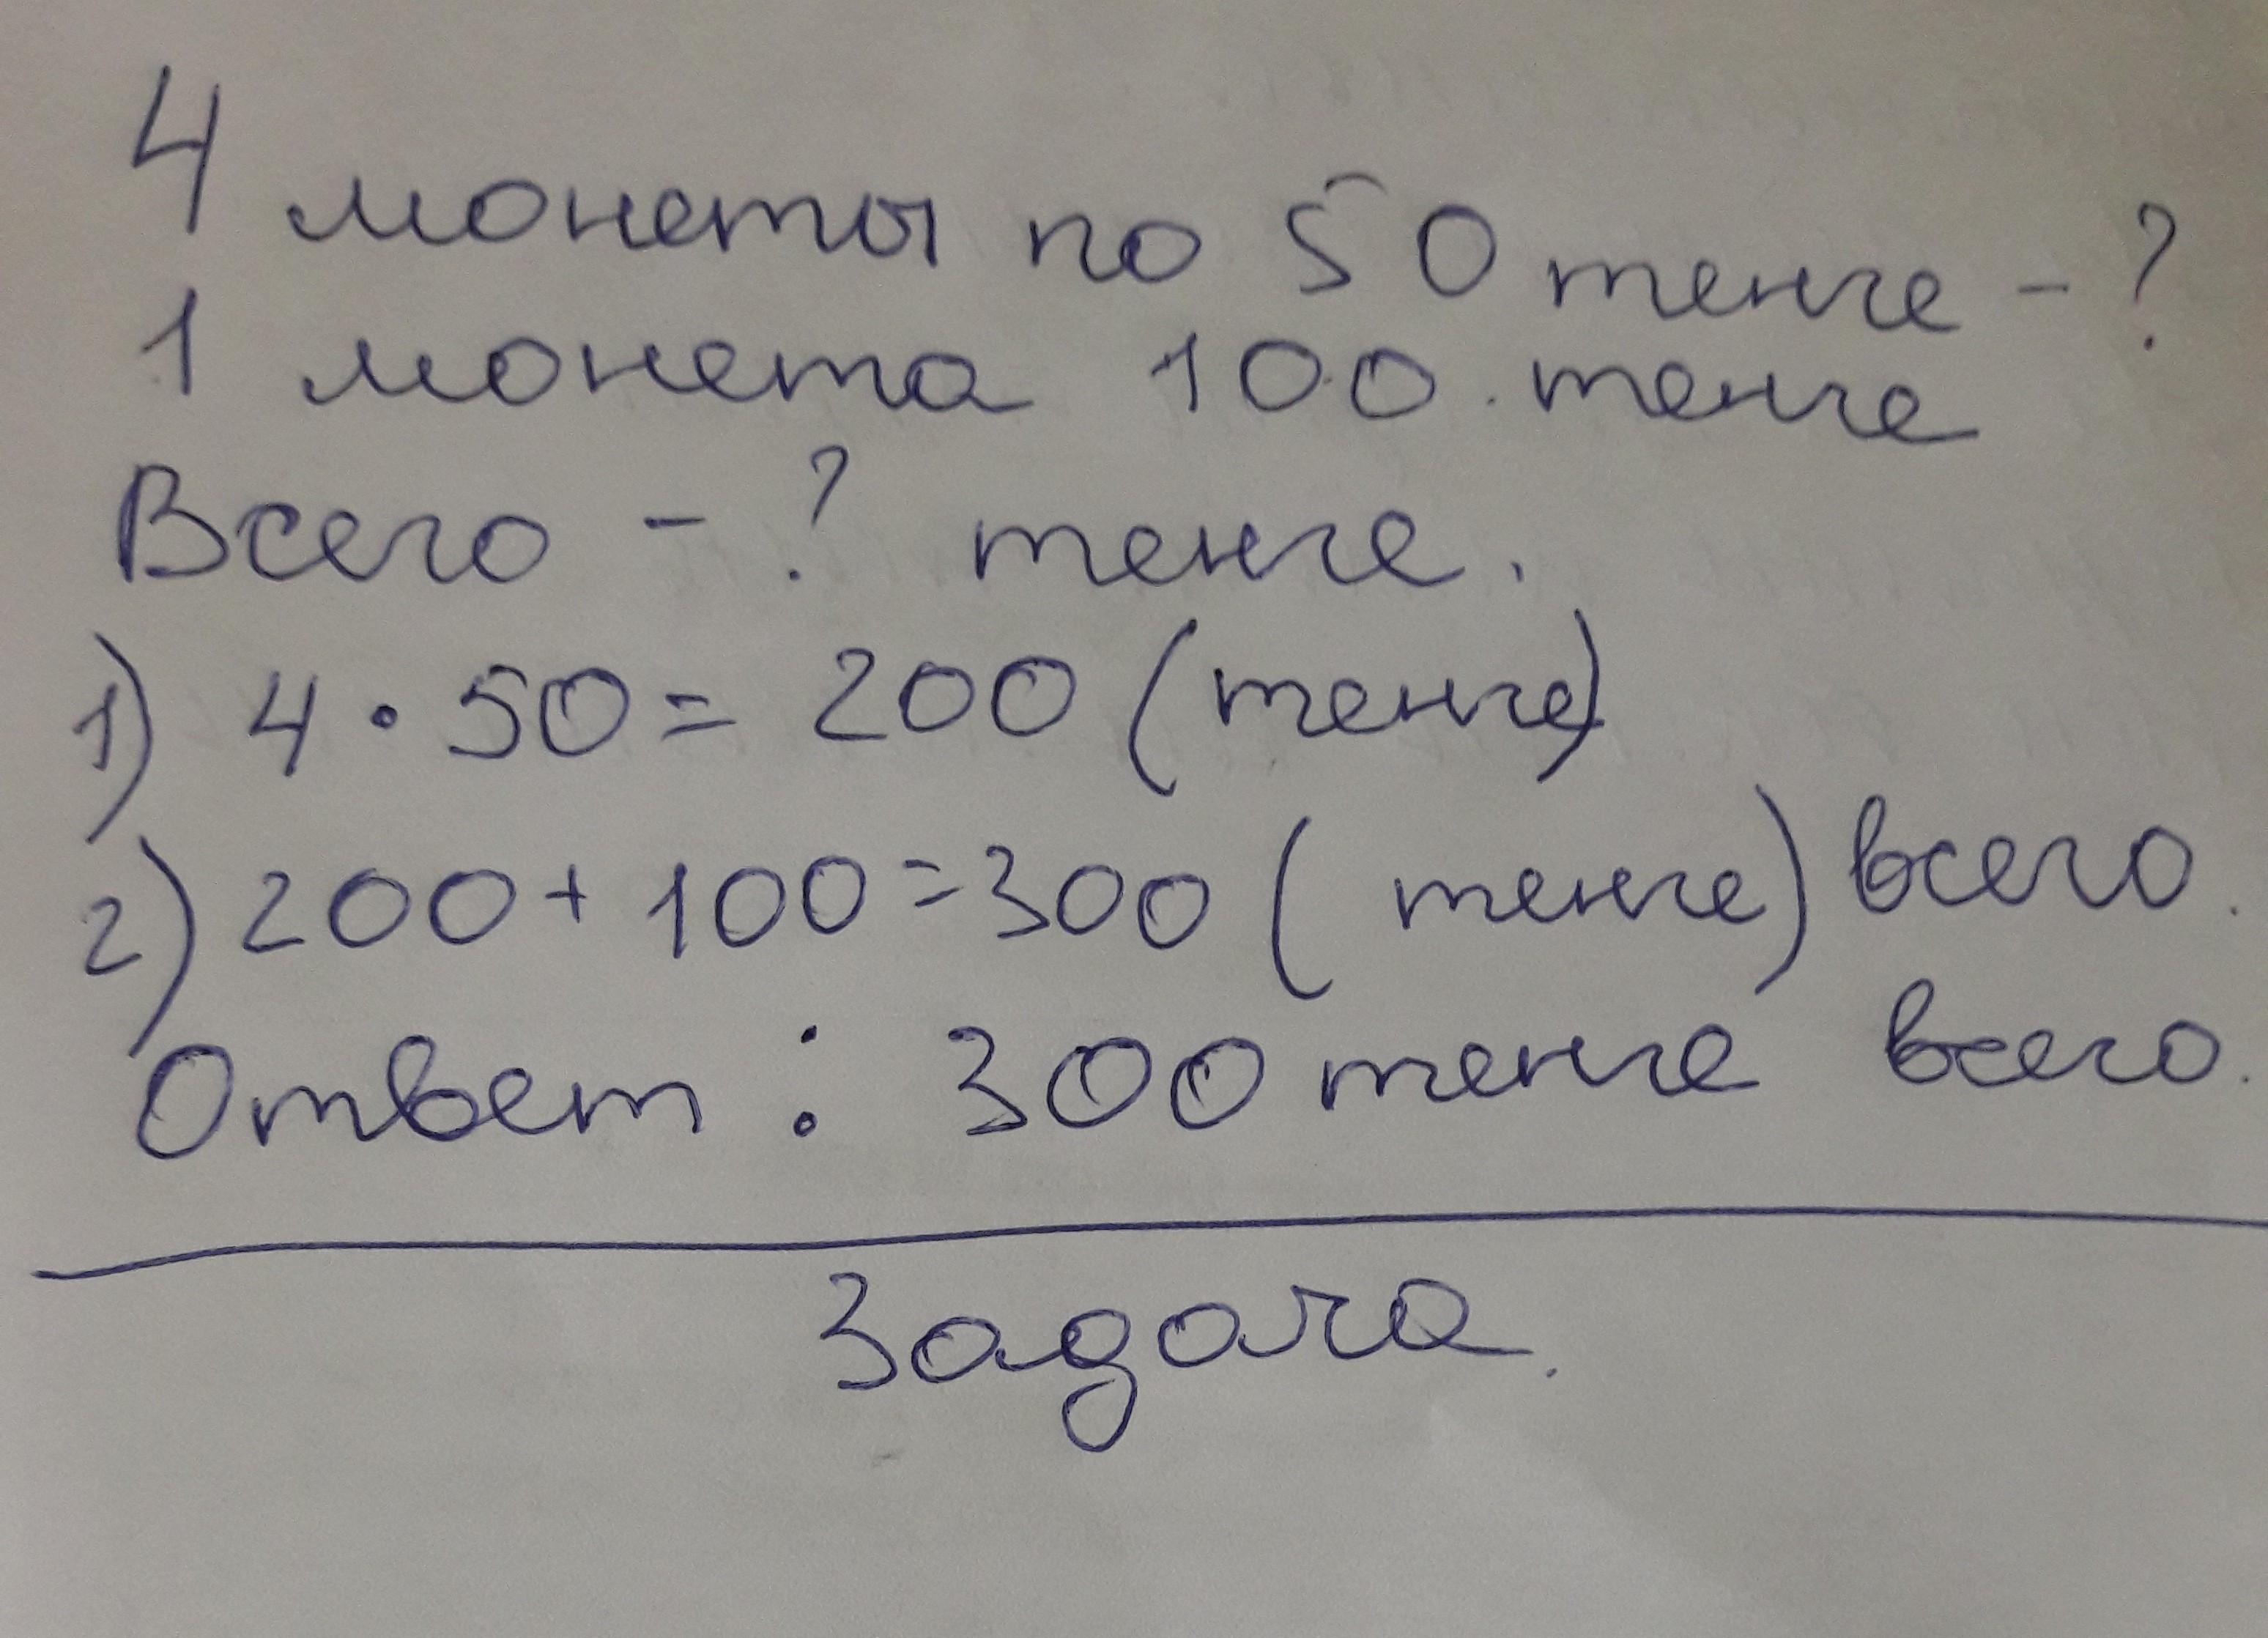 4 монеты по 50 тенге - ?
1 монета 100 тенге
Всего - ? тенге.
1) 4 • 50 = 200 (тенге)
2) 200 + 100 = 300 (тенге) всего.
Ответ : 300 тенге всего.
Задача.